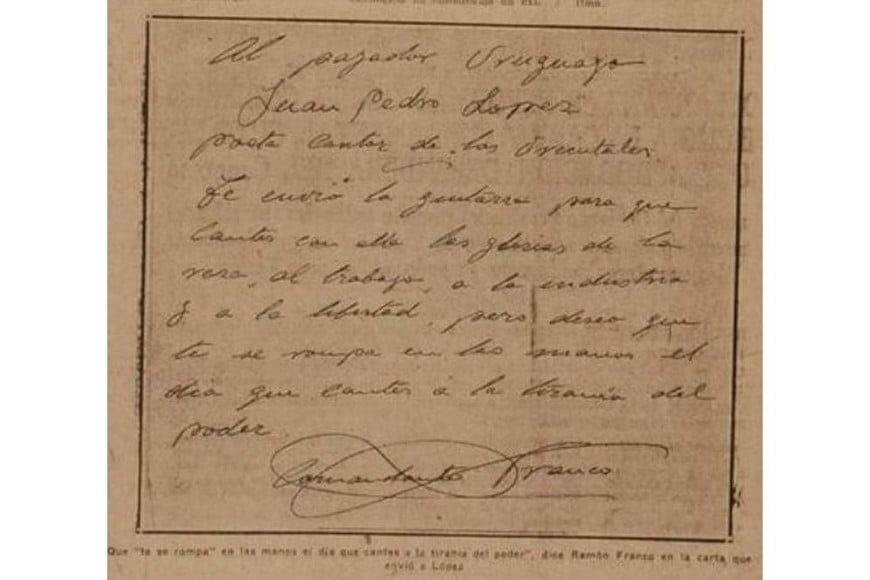 Al payador Uruguayo
Juan Pedro Lopez
poeta cantor de los Orientales.
Te envió la guitarra para que
cantes con ella las glorias de la
raza, al trabajo, a la industria
y a la libertad, pero deseo que
te se rompa en las manos el
día que cantes a la tirania del
poder.
Comandante Franco
Que "te se rompa" en las manos el día que cantes a la tiranía del poder", dice Ramón Franco en la carta que
envió a López